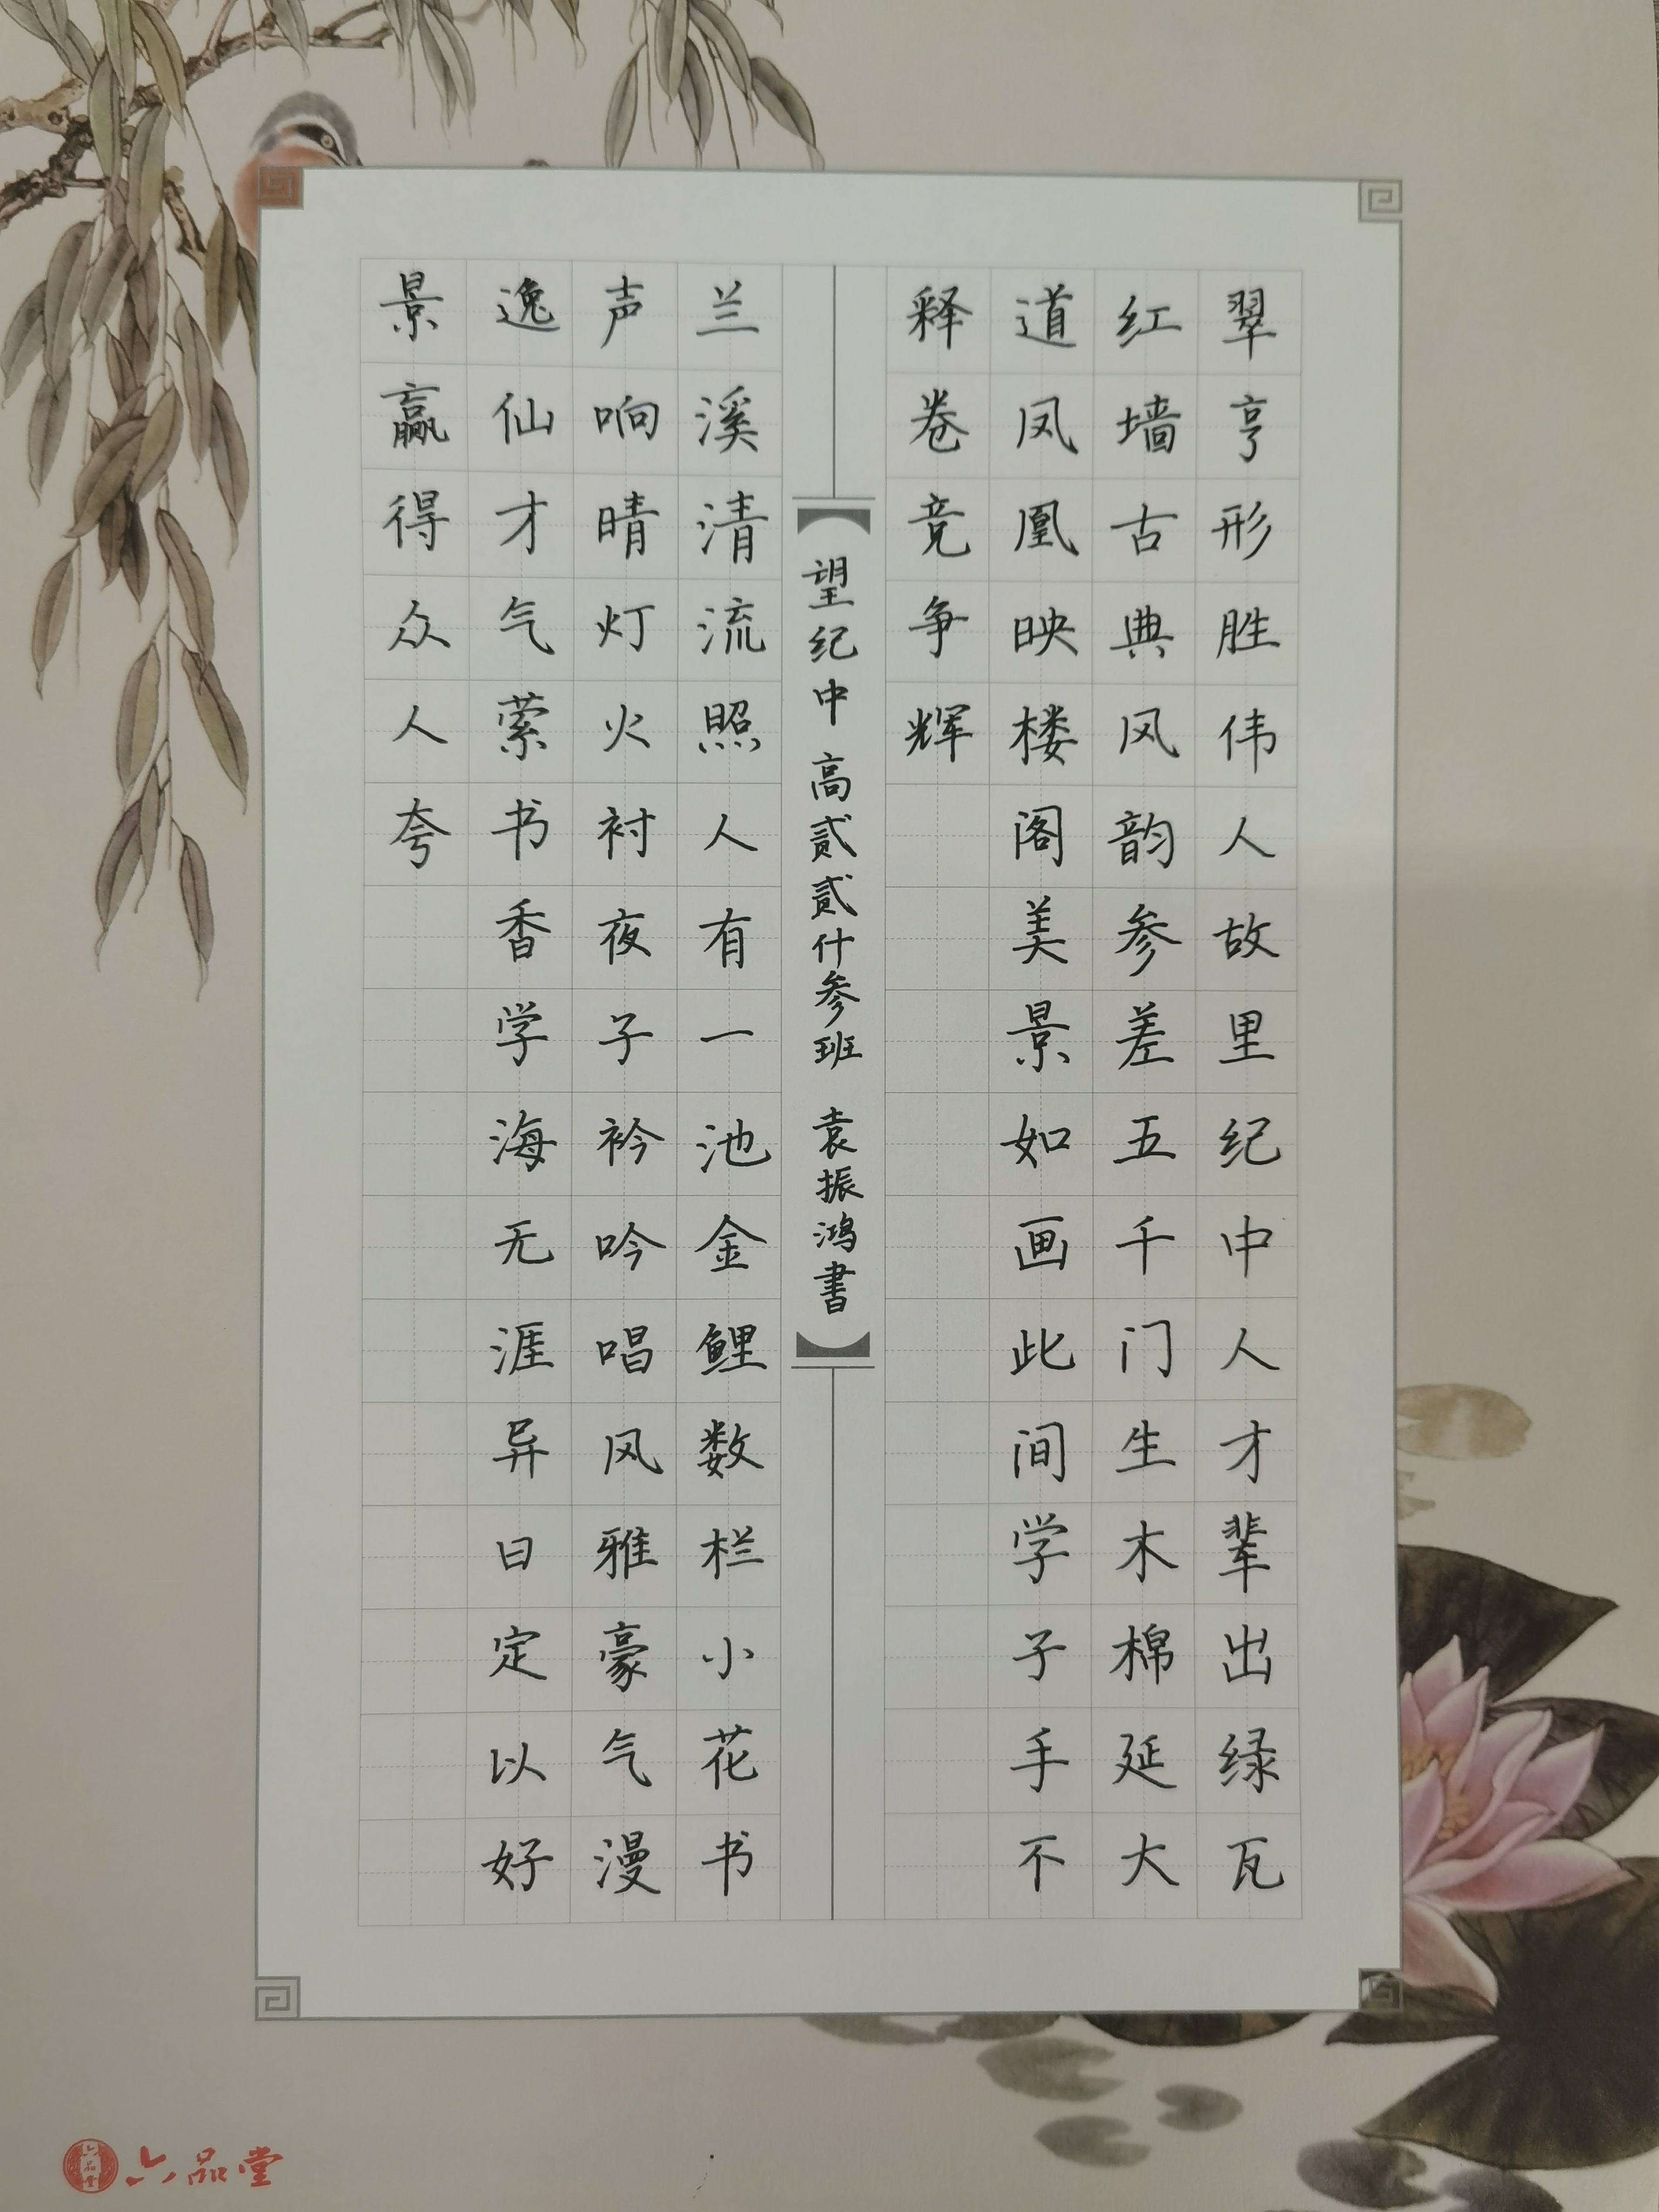 翠亨形胜伟人故里纪中人才辈出绿瓦
红墙古典风韵参差五千门生木棉延大
道凤凰映楼阁美景如画此间学子手不
释卷竞争辉
望纪中 高贰贰什参班 袁振鸿書
兰溪清流照人有一池金鲤数栏小花书
声响晴灯火衬夜子衿吟唱风雅豪气漫
逸仙才气萦书香学海无涯异日定以好
景赢得众人夸
六品堂